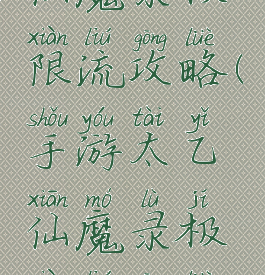 xiàn liú gōng lüè
限流攻略(
shǒu yóu tài yǐ
手游太乙
xiān mó lù jí
仙魔录极